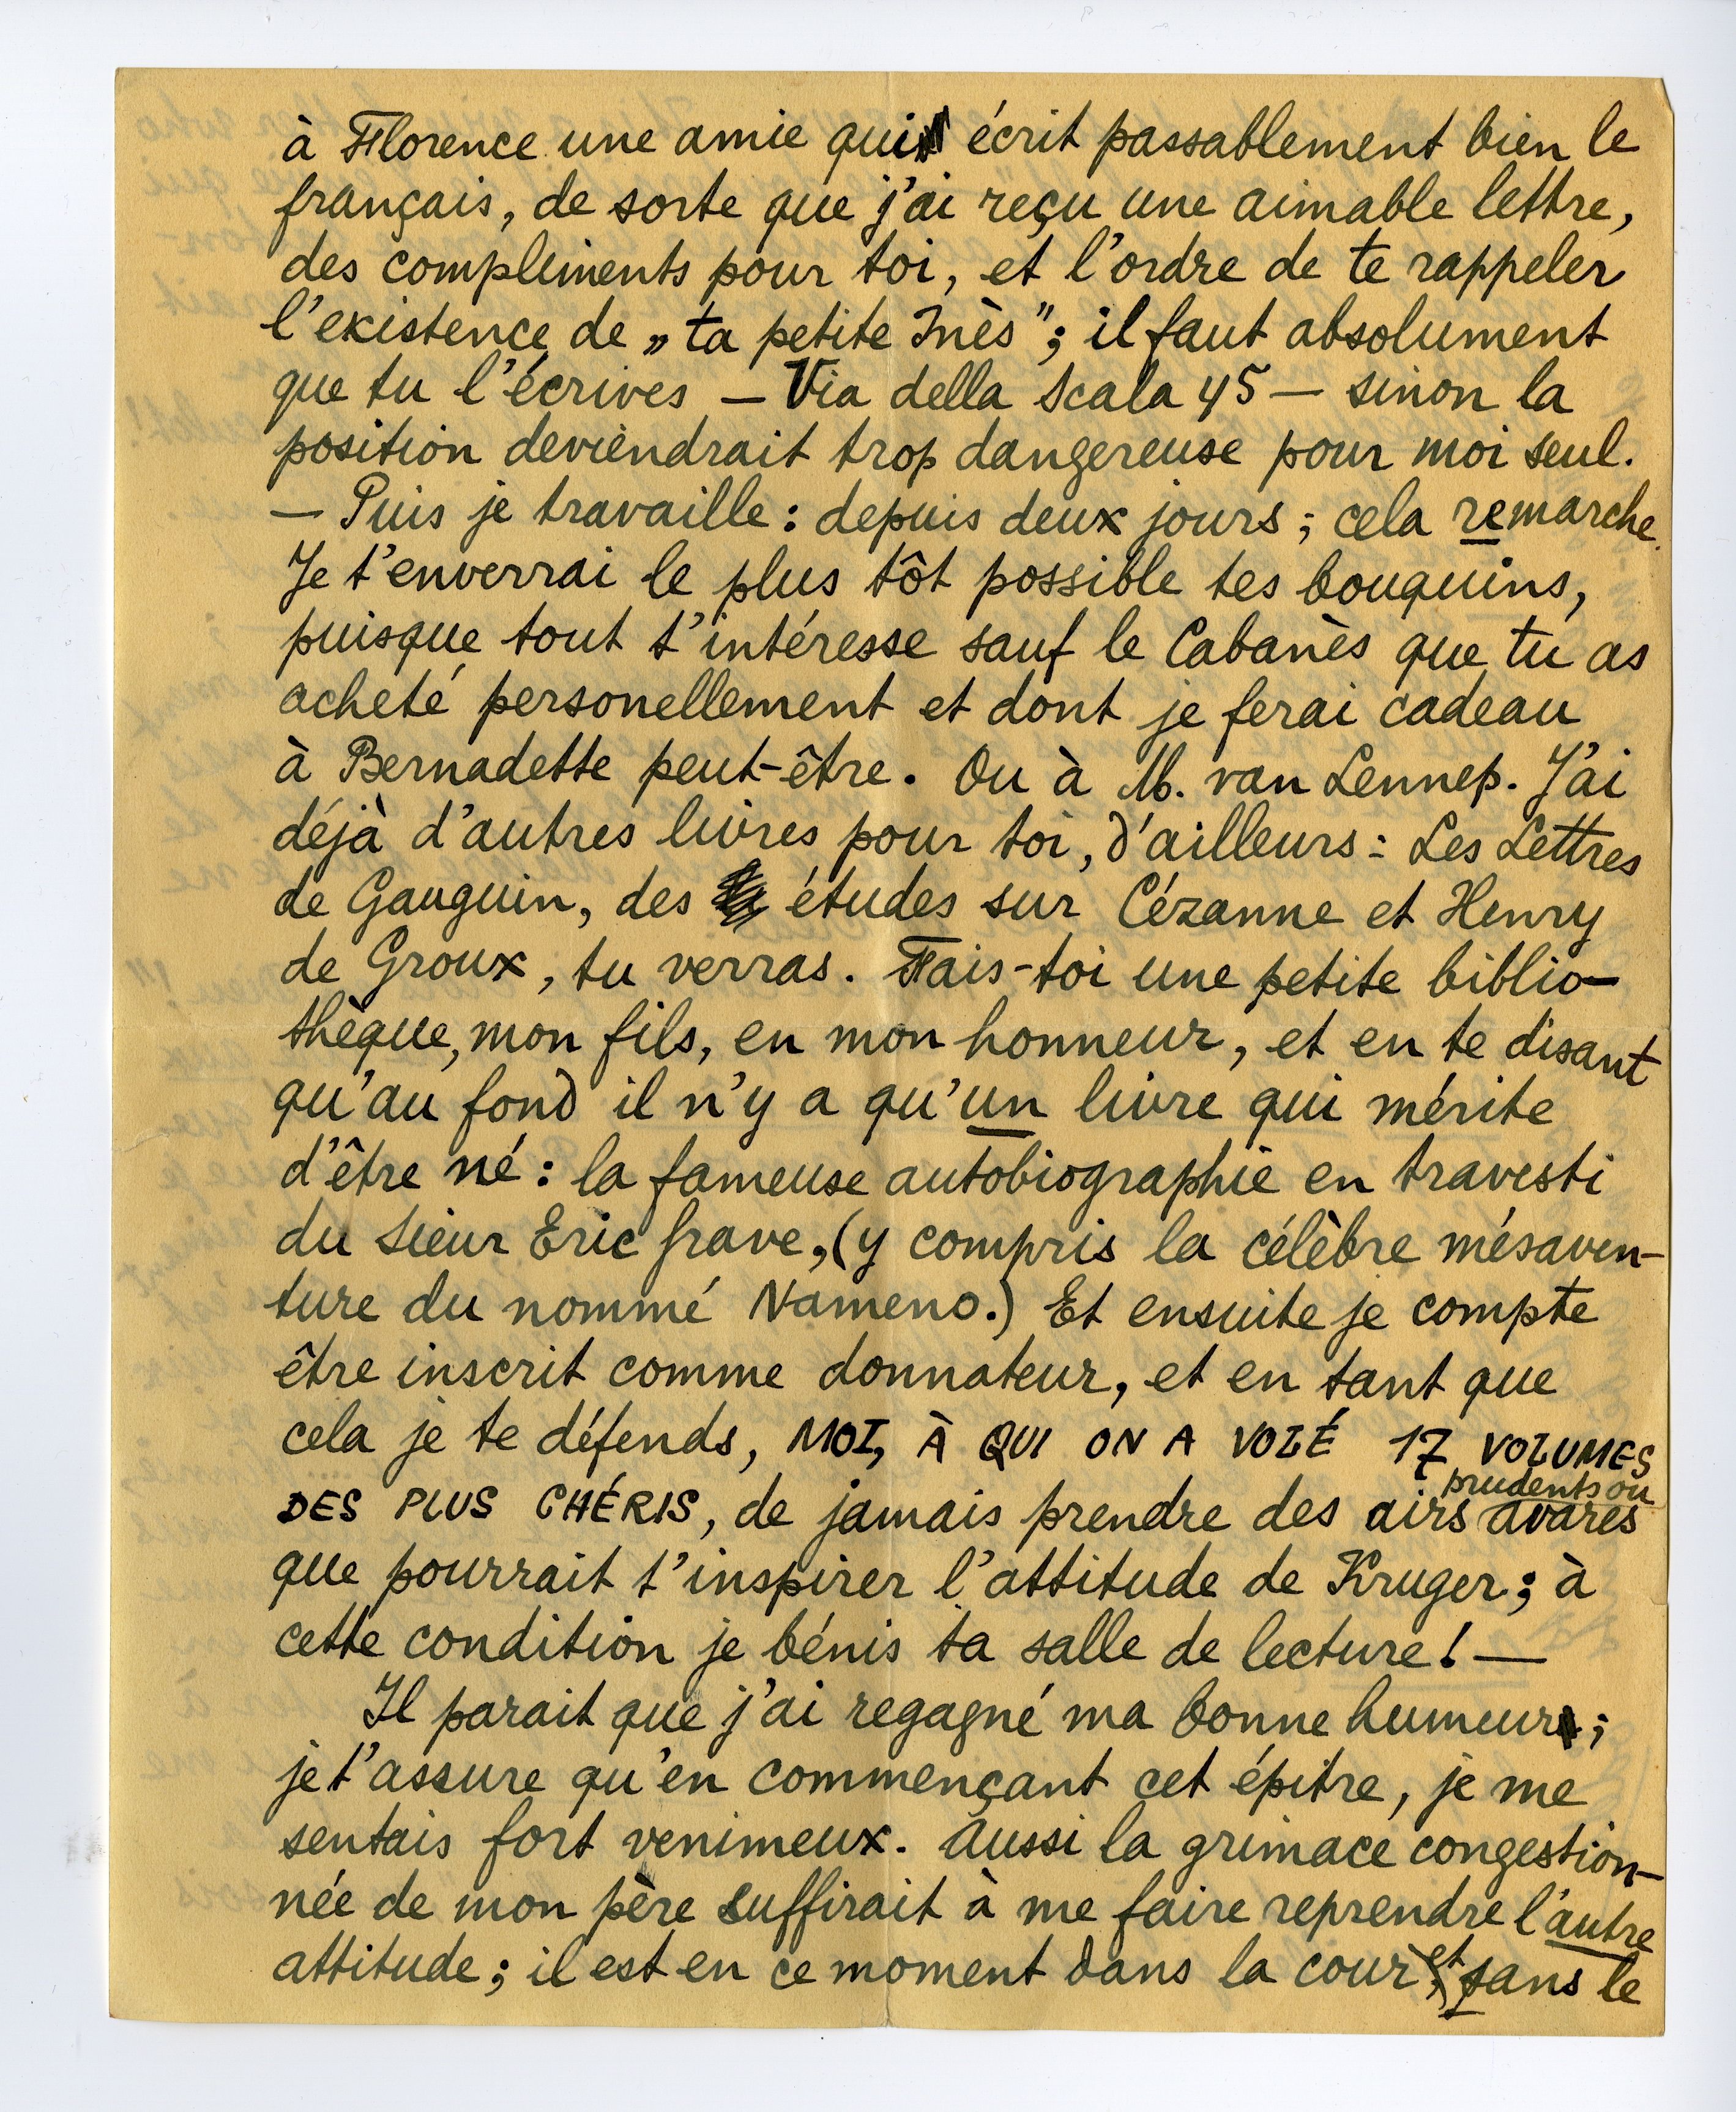 à Florence une amie qui écrit passablement bien le
français, de sorte que j'ai reçu une aimable lettre,
des compliments pour toi, et l'ordre de te rappeler
l'existence de „ta petite Inès"; il faut absolument
que tu l'écrives — Via della Scala 45 — sinon la
position deviendrait trop dangereuse pour moi seul.
— Puis je travaille: depuis deux jours; cela remarche.
Je t'enverrai le plus tôt possible tes bouquins,
puisque tout t'intéresse sauf le Cabanès que tu as
acheté personellement et dont je ferai cadeau
à Bernadette peut-être. Ou à M. van Lennep. J'ai
déjà d'autres livres pour toi, d'ailleurs: Les Lettres
de Gauguin, des études sur Cézanne et Henry
de Groux, tu verras. Fais-toi une petite biblio-
thèque, mon fils, en mon honneur, et en te disant
qu'au fond il n'y a qu'un livre qui mérite
d'être né: la fameuse autobiographie en travesti
du Sieur Eric grave, (y compris la célèbre mésaven-
ture du nommé Nameno.) Et ensuite je compte
être inscrit comme donnateur, et en tant que
cela je te défends, MOI, À QUI ON A VOLÉ 17 VOLUMES
DES PLUS CHÉRIS, de jamais prendre des airs prudents ou avares
que pourrait t'inspirer l'attitude de Kruger; à
cette condition je bénis ta salle de lecture! —
Il parait que j'ai regagné ma bonne humeur;
je t'assure qu'en commençant cet épitre, je me
sentais fort venimeux. Aussi la grimace congestion-
née de mon père suffirait à me faire reprendre l'autre
attitude; il est en ce moment dans la cour, et sans le